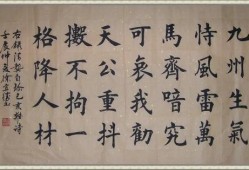 九州生氣
恃風雷萬
馬齊喑究
可哀我勸
天公重抖
擻不拘一
格降人材
右錄清龔自珍己亥雜詩
壬辰仲夏